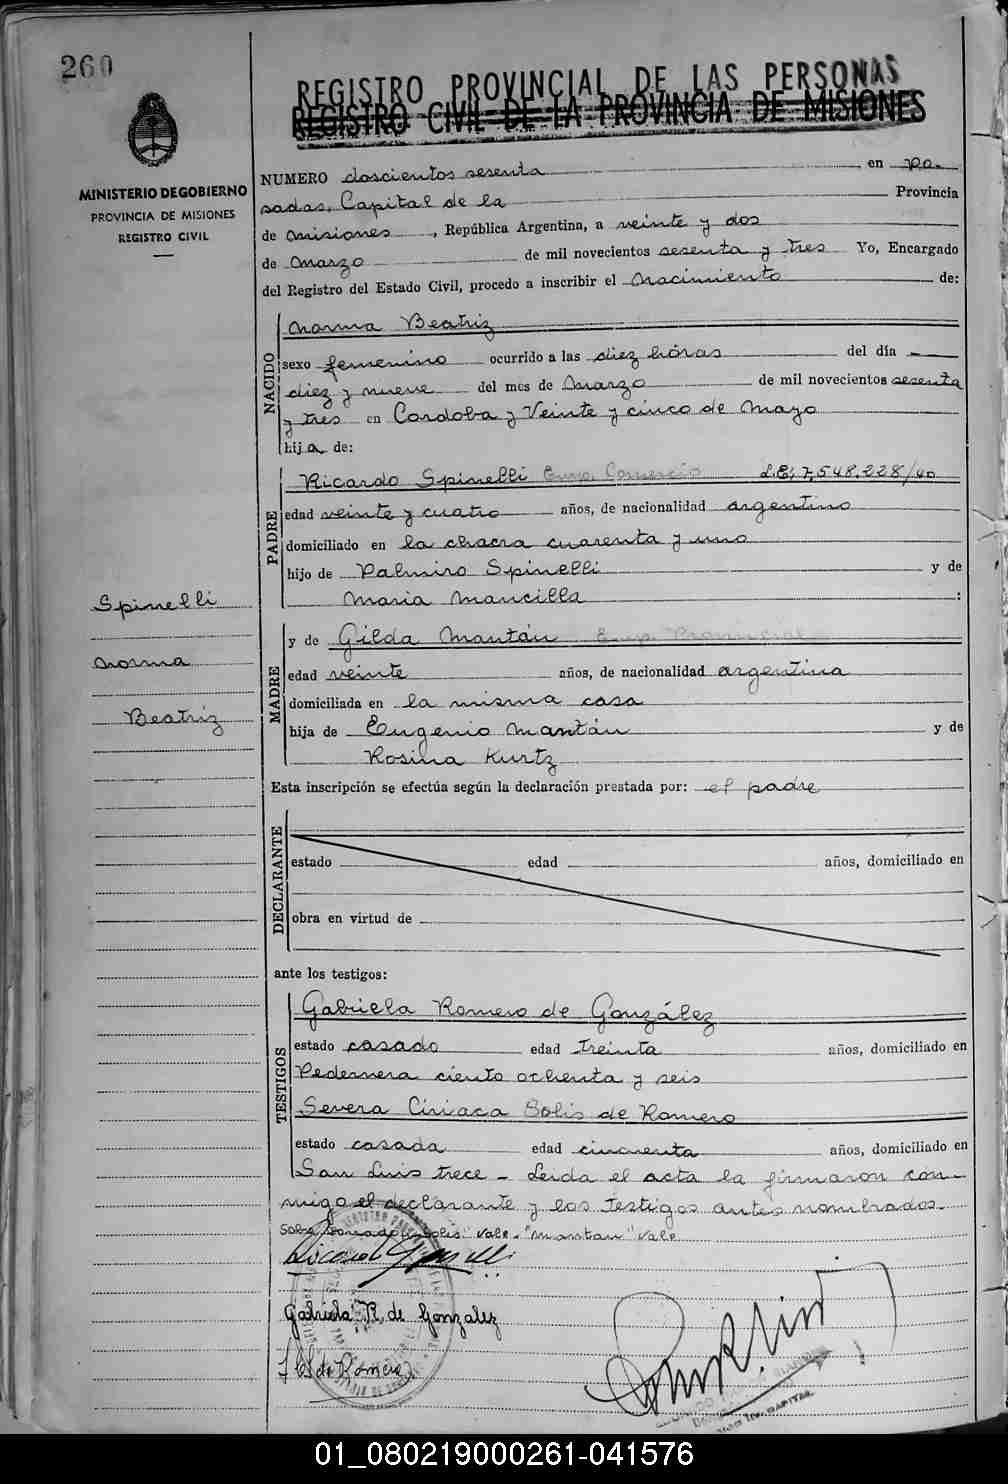 260
REGISTRO PROVINCIAL DE LAS PERSONAS
REGISTRO CIVIL DE LA PROVINCIA DE MISIONES
MINISTERIO DE GOBIERNO
PROVINCIA DE MISIONES
REGISTRO CIVIL
NUMERO doscientos sesenta en Po-
sadas, Capital de la Provincia
de Misiones, República Argentina, a veinte y dos
de Marzo de mil novecientos sesenta y tres Yo, Encargado
del Registro del Estado Civil, procedo a inscribir el Nacimiento de:
NACIDO
Norma Beatriz
sexo femenino ocurrido a las diez horas del día
diez y nueve del mes de Marzo de mil novecientos sesenta
y tres en Cordoba y Veinte y cinco de Mayo
hija de:
PADRE
Ricardo Spinelli Emp. Comercio L.E; 7,548.228/40
edad veinte y cuatro años, de nacionalidad argentino
domiciliado en la chacra cuarenta y uno
hijo de Palmiro Spinelli y de
Maria Mancilla :
Spinelli
Norma
Beatriz
MADRE
y de Gilda Mantán Emp. Provincial
edad veinte años, de nacionalidad argentina
domiciliada en la misma casa
hija de Eugenio Mantán y de
Rosina Kurtz
Esta inscripción se efectúa según la declaración prestada por: el padre
DECLARANTE
estado edad años, domiciliado en
obra en virtud de
ante los testigos:
TESTIGOS
Gabriela Romero de González
estado casado edad treinta años, domiciliado en
Pedernera ciento ochenta y seis
Severa Ciriaca Solis de Romero
estado casada edad cincuenta años, domiciliado en
San Luis trece - Leida el acta la firmaron con-
migo el declarante y los testigos antes nombrados.
Sobre "Solis" vale - "Mantan" vale
Ricardo Spinelli
Gabriela R. de Gonzalez
S de Romero
CAPITAL
01_080219000261-041576